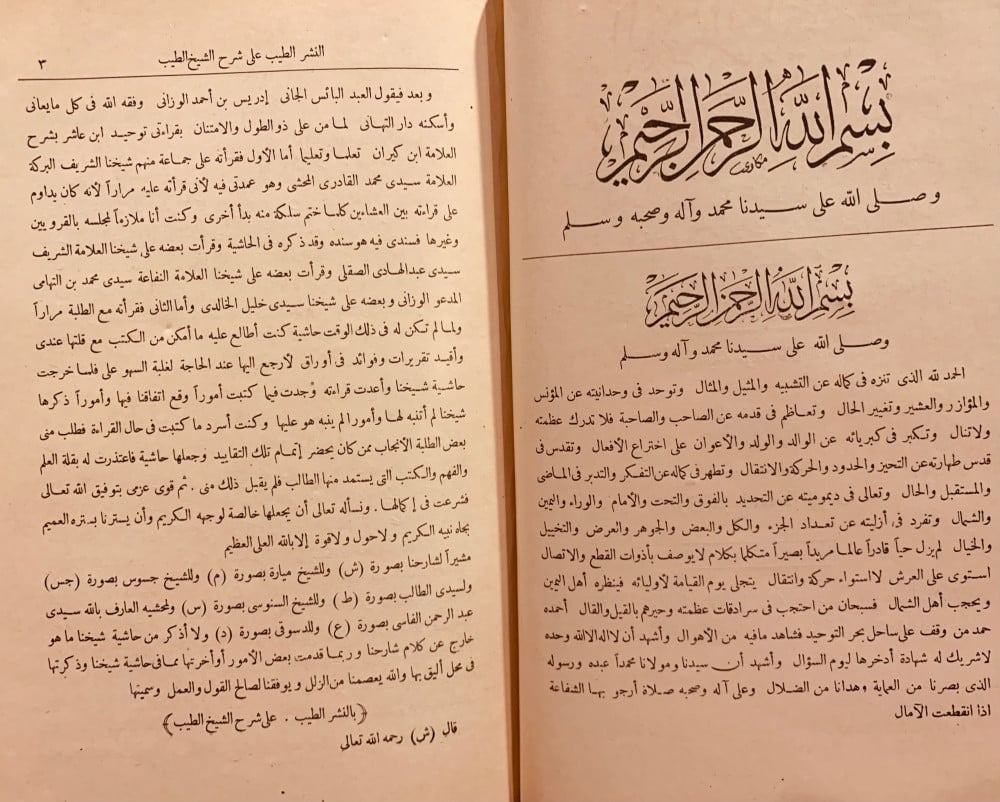 بسم الله الرحمن الرحيم
وصلى الله على سيدنا محمد وآله وصحبه وسلم
بسم الله الرحمن الرحيم
وصلى الله على سيدنا محمد وآله وسلم
الحمد لله الذى تنزه فى كماله عن التشبيه والمثيل والمثال وتوحد فى وحدانيته عن المؤنس
والمؤازر والعشير وتغيير الحال وتعاظم فى قدمه عن الصاحب والصاحبة فلا تدرك عظمته
ولا تنال وتكبر فى كبريائه عن الوالد والولد والاعوان على اختراع الأفعال وتقدس فى
قدس طهارته عن التحيز والحدود والحركة والانتقال وتطهر فى كماله عن التفكر والتدبر فى الماضى
والمستقبل والحال وتعالى فى ديموميته عن التحديد بالفوق والتحت والأمام والوراء واليمين
والشمال وتفرد فى أزليته عن تعداد الجزء والكل والبعض والجوهر والعرض والتخييل
والخيال لم يزل حياً قادراً عالما مريداً بصيراً متكلما بكلام لا يوصف بأدوات القطع والاتصال
استوى على العرش لا استواء حركة وانتقال يتجلى يوم القيامة لأوليائه فينظره أهل اليمين
ويحجب أهل الشمال فسبحان من احتجب فى سرادقات عظمته وحيرهم بالقيل والقال أحمده
حمد من وقف على ساحل بحر التوحيد فشاهد مافيه من الأهوال وأشهد أن لا اله الا الله وحده
لا شريك له شهادة أدخرها ليوم السؤال وأشهد أن سيدنا ومولانا محمداً عبده ورسوله
الذى بصرنا من العماية وهدانا من الضلال وعلى آله وصحبه صلاة أرجو بها الشفاعة
اذا انقطعت الآمال
النشر الطيب على شرح الشيخ الطيب ٣
وبعد فيقول العبد البائس الجانى إدريس بن أحمد الوزانى وفقه الله فى كل مايعانى
وأسكنه دار التهانى لما من على ذو الطول والامتنان بقراءتى توحيد ابن عاشر بشرح
العلامة ابن كيران تعلما وتعليما أما الأول فقرأته على جماعة منهم شيخنا الشريف البركة
العلامة سيدى محمد القادرى المحشى وهو عمدتى فيه لأنى قرأته عليه مراراً لأنه كان يداوم
على قراءته بين العشاءين كلما ختم سلكة منه بدأ أخرى وكنت أنا ملازماً لمجلسه بالقرويين
وغيرها فسندى فيه هو سنده وقد ذكره فى الحاشية وقرأت بعضه على شيخنا العلامة الشريف
سيدى عبد الهادى الصقلى وقرأت بعضه على شيخنا العلامة النفاعة سيدى محمد بن التهامى
المدعو الوزانى وبعضه على شيخنا سيدى خليل الخالدى وأما الثانى فقرأته مع الطلبة مراراً
ولما لم تكن له فى ذلك الوقت حاشية كنت أطالع عليه ما أمكن من الكتب مع قلتها عندى
وأقيد تقريرات وفوائد فى أوراق لأرجع اليها عند الحاجة لغلبة السهو على فلما خرجت
حاشية شيخنا وأعدت قراءته وجدت فيما كتبت أموراً وقع اتفاقنا فيها وأموراً ذكرها
شيخنا لم أتنبه لها وأمورا لم ينبه هو عليها وكنت أسرد ما كتبت فى حال القراءة فطلب منى
بعض الطلبة الانجاب ممن كان يحضر إتمام تلك التقاييد وجعلها حاشية فاعتذرت له بقلة العلم
والفهم والكتب التى يستمد منها الطالب فلم يقبل ذلك منى . ثم قوى عزمى بتوفيق الله تعالى
فشرعت فى إكمالها . ونسأله تعالى أن يجعلها خالصة لوجهه الكريم وأن يسترنا بستره العميم
بجاه نبيه الكريم ولا حول ولا قوة إلا بالله العلى العظيم
مشيراً لشارحنا بصورة (ش) وللشيخ ميارة بصورة (م) وللشيخ جسوس بصورة (جس)
ولسيدى الطالب بصورة (ط) وللشيخ السنوسى بصورة (س) ولمحشيه العارف بالله سيدى
عبد الرحمن الفاسى بصورة (ع) وللدسوقى بصورة (د) ولا أذكر من حاشية شيخنا ما هو
خارج عن كلام شارحنا وربما قدمت بعض الأمور أو أخرتها مما فى حاشية شيخنا وذكرتها
فى محل أليق بها والله يعصمنا من الزلل ويوفقنا لصالح القول والعمل وسميتها
﴿بالنشر الطيب . على شرح الشيخ الطيب﴾
قال (ش) رحمه الله تعالى